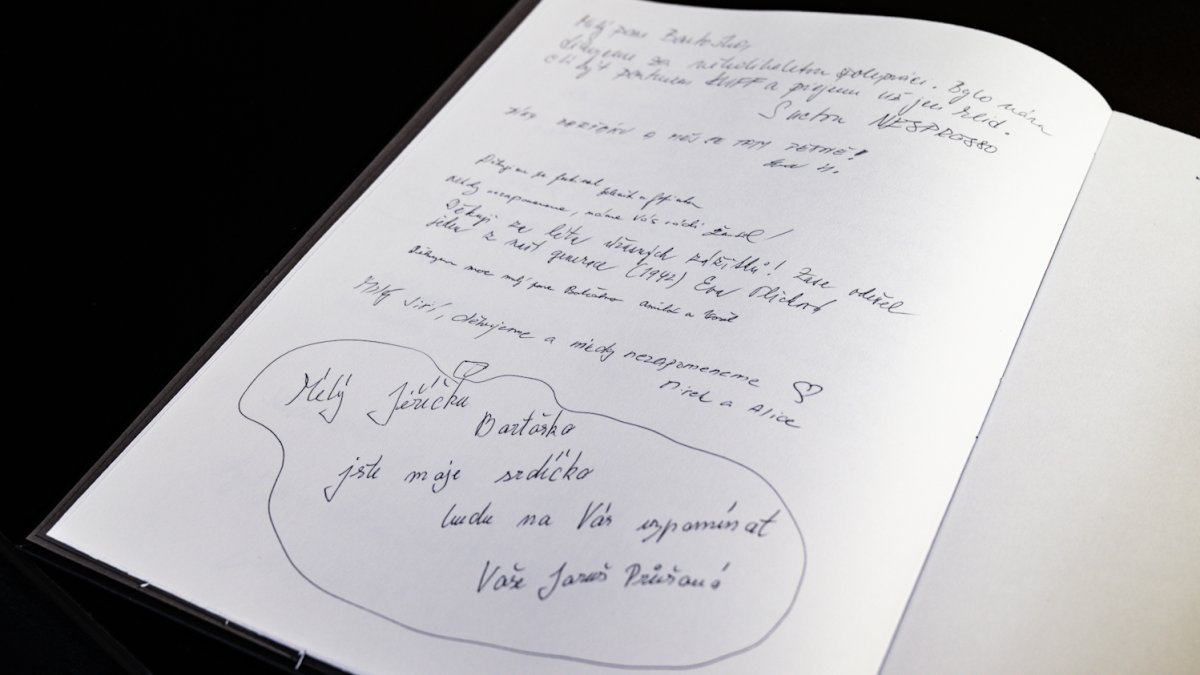 Milý pane Bartoško,
děkujeme za několikaletou spolupráci. Bylo nám
ctí být partnerem KVIFF a přejeme už jen klid.
NESPRESSO
BARTOŠKU A MĚJ SE TAM PĚKNĚ!
Děkujeme za festival
Nikdy nezapomeneme, máme Vás rádi
Děkuji za léta úžasných zážitků! Zase odešel
jeden z naší generace (1942) Eva
Děkujeme moc milý pane Bartoško
Milý Jiří, děkujeme a nikdy nezapomeneme ♡
Mirek a Alice
Milý Jiříčku
Bartoško
jste moje srdíčko
budu na Vás vzpomínat
Vaše Jaruš Průšová